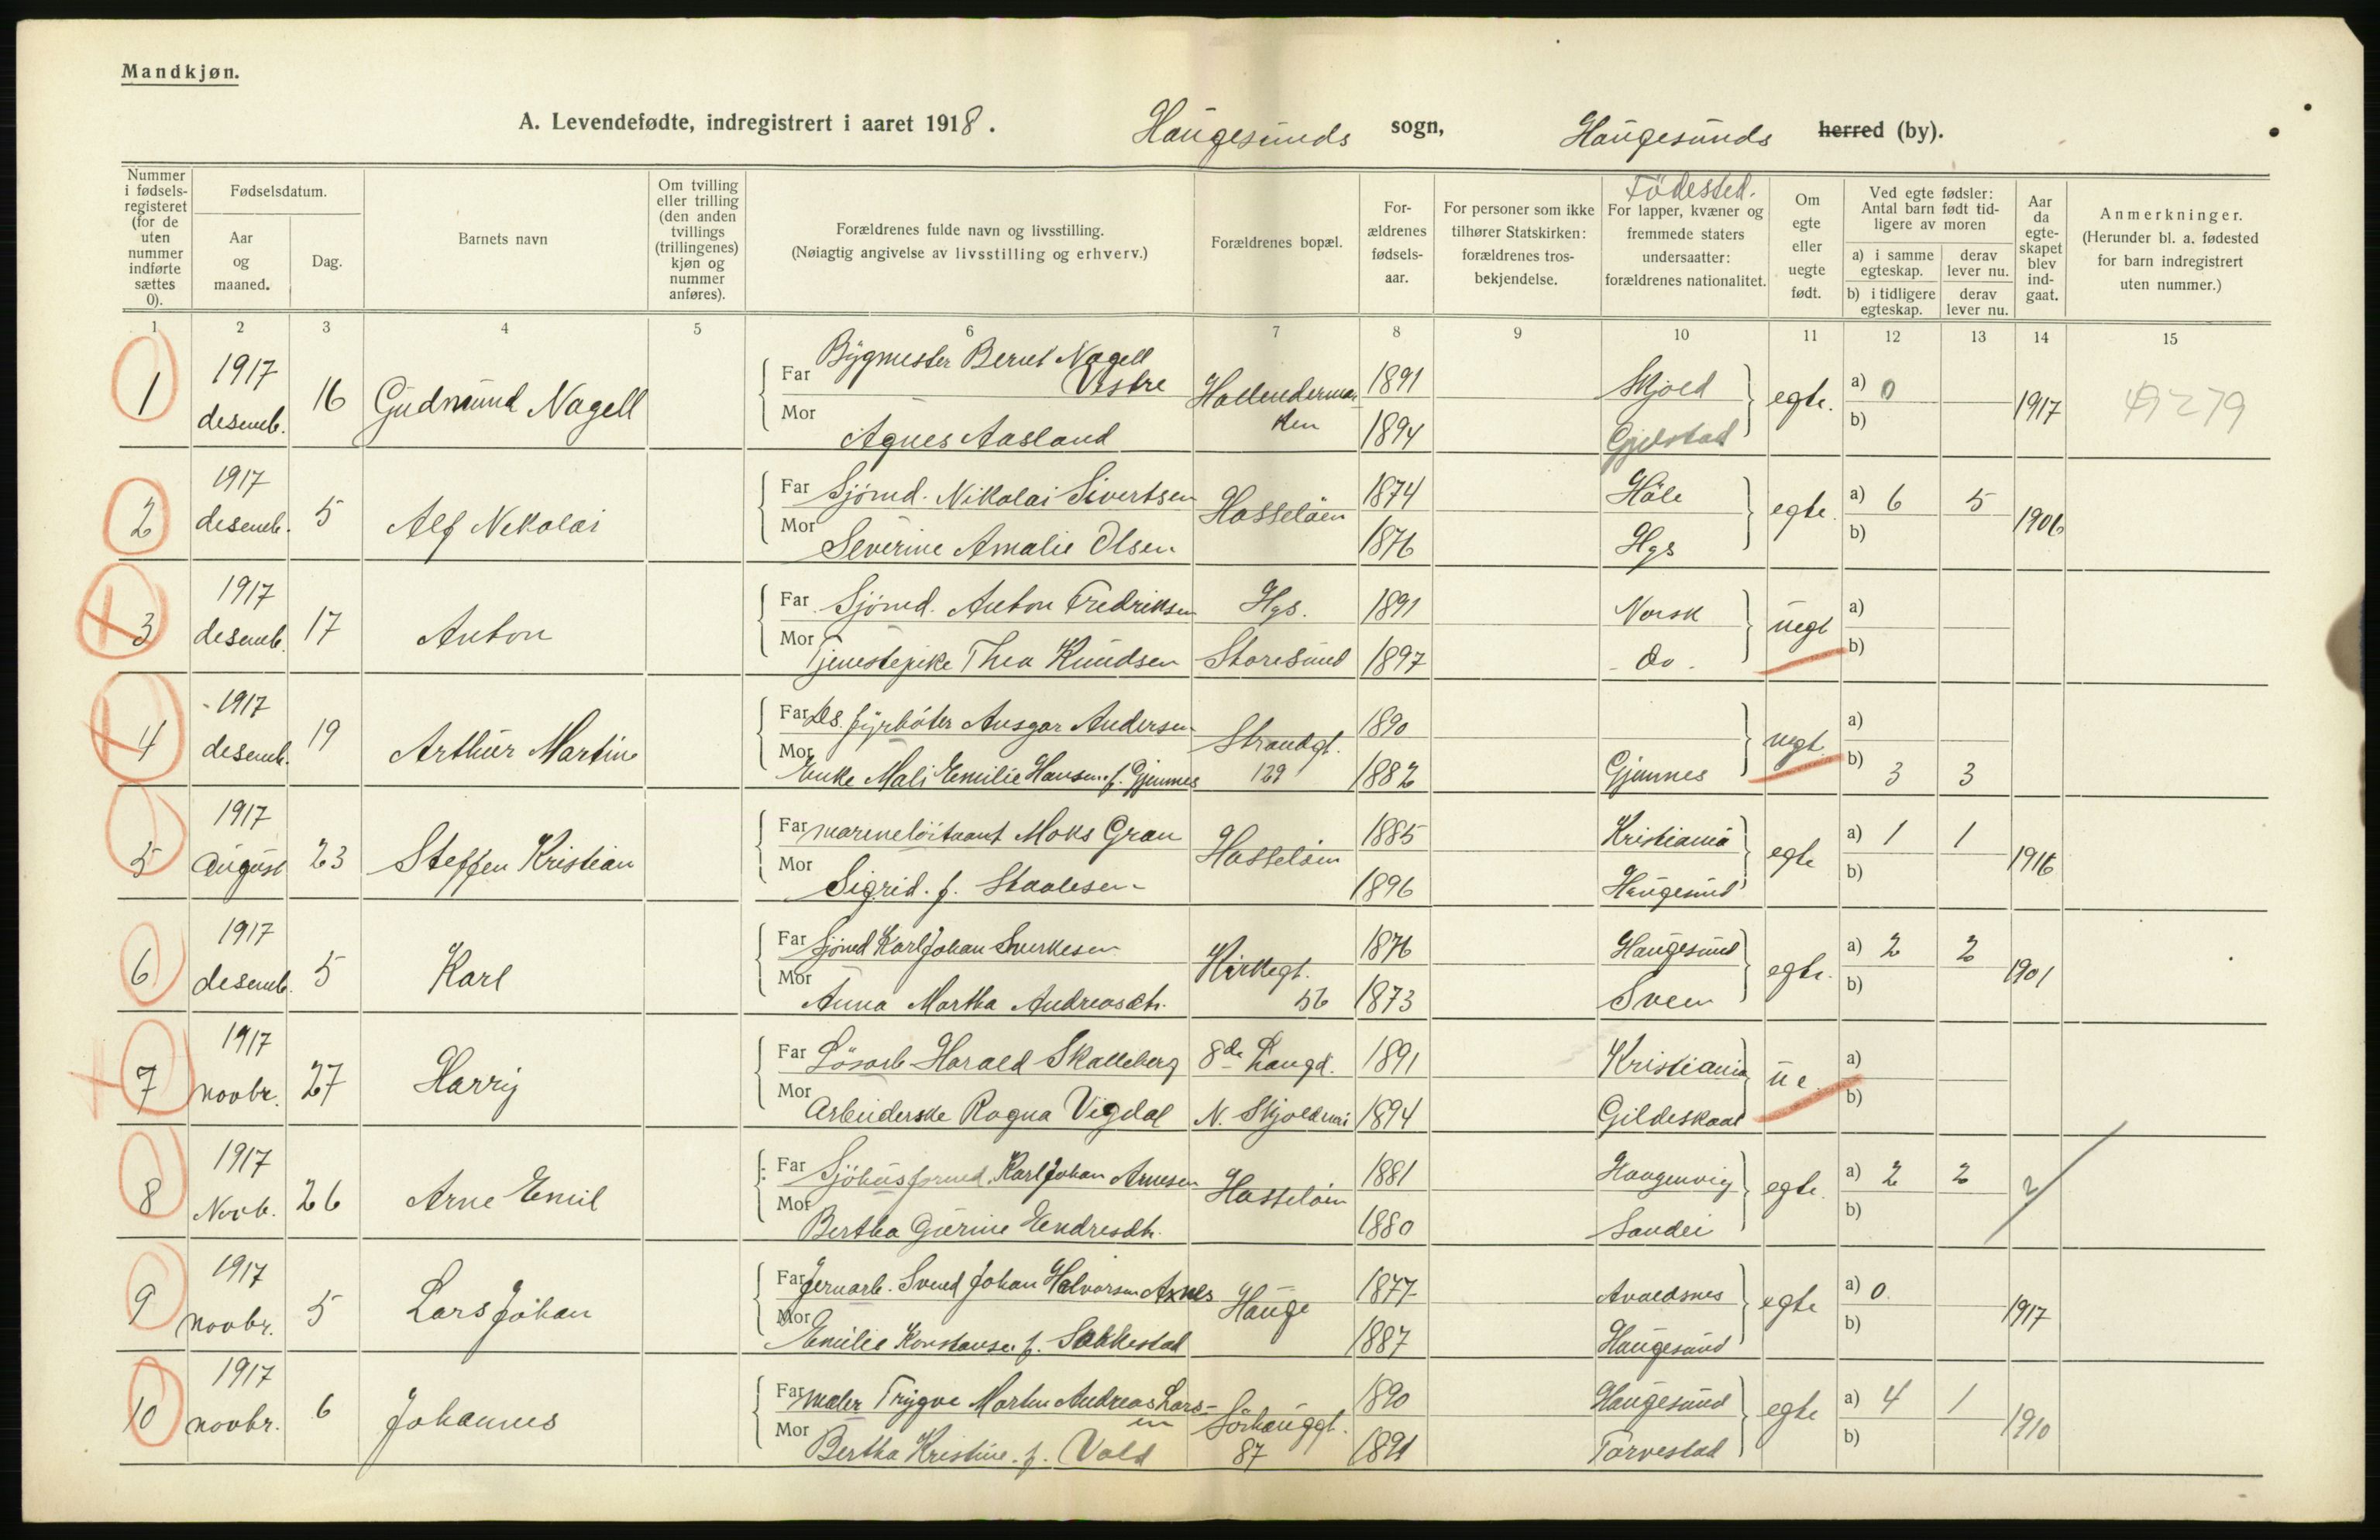 Mandkjøn.
A. Levendefødte, indregistrert i aaret 1918. Haugesunds sogn, Haugesunds herred (by).
Nummer i fødsels-registeret (for de uten nummer indførte sættes 0).
Fødselsdatum.
Aar og maaned.
Dag.
Barnets navn
Om tvilling eller trilling (den anden tvillings (trillingenes) kjøn og nummer anføres).
Forældrenes fulde navn og livsstilling.
(Nøiagtig angivelse av livsstilling og erhverv.)
Forældrenes bopæl.
For-ældrenes fødsels-aar.
For personer som ikke tilhører Statskirken: forældrenes tros-bekjendelse.
Födested.
For lapper, kvæner og fremmede staters undersaatter: forældrenes nationalitet.
Om egte eller uegte født.
Ved egte fødsler: Antal barn født tid-ligere av moren
a) i samme egteskap. derav lever nu.
b) i tidligere egteskap. derav lever nu.
Aar da egte-skapet blev ind-gaat.
Anmerkninger.
(Herunder bl. a. fødested for barn indregistrert uten nummer.)
1 2 3 4 5 6 7 8 9 10 11 12 13 14 15
1 1917 desemb. 16 Gudmund Nagell
Far Bygmester Bernt Nagell Vestre Hollendermarken 1891 Skjold egte. a) 0 1917 49279
Mor Agnes Aasland 1894 Gjerstad b)
2 1917 desemb. 5 Alf Nikolai
Far Sjömd. Nikolai Sivertsen Hasselöen 1874 Höle egte. a) 6 5 1906
Mor Severine Amalie Olsen 1876 Hgs b)
3 1917 desemb. 17 Anton
Far Sjömd. Anton Fredriksen Hgs. 1891 Norsk uegt a)
Mor Tjenestepike Thea Knudsen Storesund 1897 - do - b)
4 1917 desemb. 19 Arthur Martin
Far Ds. fyrböter Ansgar Andersen Strandgt. 1890 uegt. a)
Mor Enke Mali Emilie Hansen f. Gjemnes 129 1882 Gjemnes b) 3 3
5 1917 August 23 Steffen Kristian
Far marinelöitnant Maks Gran Hasselöen 1885 Kristiania egte a) 1 1 1916
Mor Sigrid. f. Staalesen 1896 Haugesund b)
6 1917 desemb. 5 Karl
Far Sjömd Karl Johan Sverkesen Kirkegt. 1876 Haugesund egte. a) 2 2 1901
Mor Anna Martha Andreasdtr. 56 1873 Sveen b)
7 1917 novbr. 27 Harry
Far Lösarb Harald Skalleberg 8de Langd. 1891 Kristiania u e. a)
Mor Arbeiderske Ragna Vigdal N. Skjoldnei 1894 Gildeskaal b)
8 1917 Novb. 26 Arne Emil
Far Sjöhusformd. Karl Johan Arnesen Hasselöen 1881 Haugenvig egte. a) 2 2 ?
Mor Bertha Gurine Endresdtr. 1880 Sandei b)
9 1917 novbr. 5 Lars Johan
Far Jernarb. Svend Johan Halvorsen Axnes Hauge 1877 Avaldsnes egte a) 0 1917
Mor Emilie Konstanse f. Sakkestad 1887 Haugesund b)
10 1917 novbr. 6 Johannes
Far maler Trygve Martin Andreas Lars-en Sörhauggt. 1890 Haugesund egte a) 4 1 1910
Mor Bertha Kristine. f. Vold 87 1891 Torvestad b)